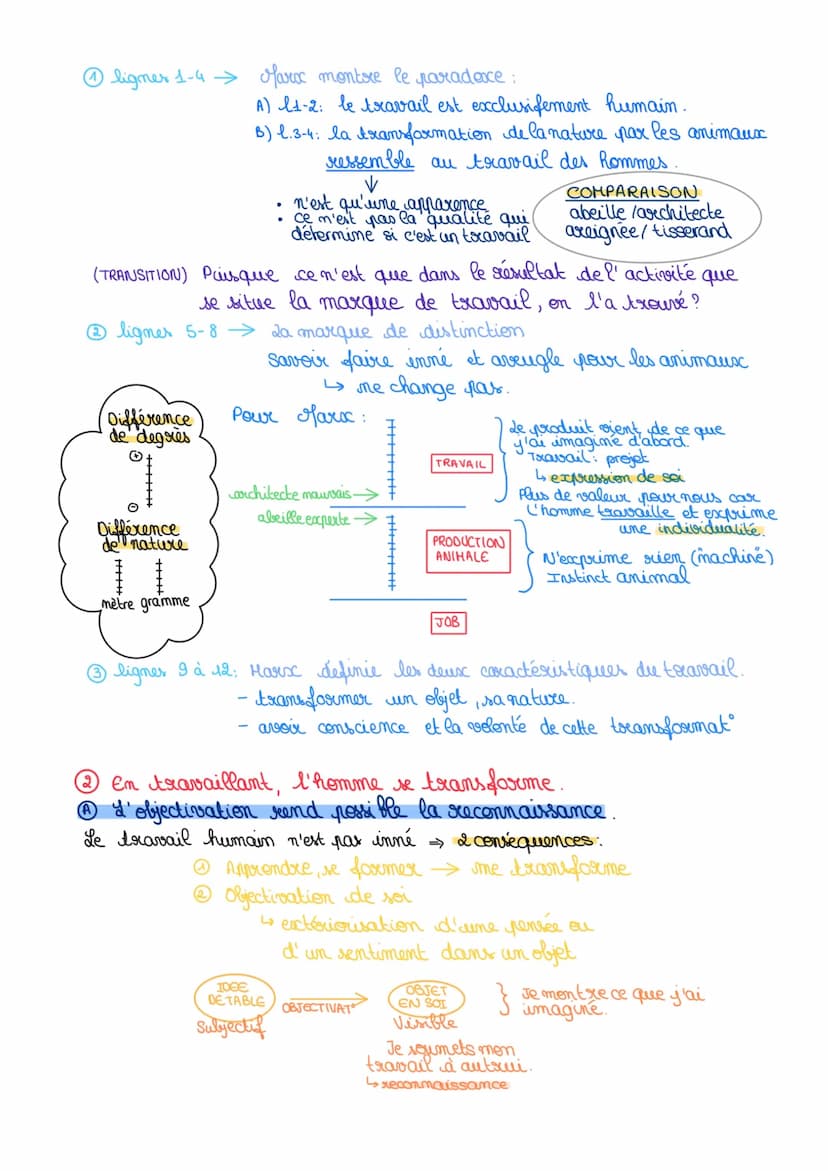 ① lignes 1-4 → Marx montre le paradoxe :
A) l1-2: le travail est exclusifement humain.
B) l.3-4: la transformation de la nature par les animaux
ressemble au travail des hommes.
• n'est qu'une apparence
• ce n'est pas la qualité qui
détermine si c'est un travail
COMPARAISON
abeille / architecte
areignée / tisserand
(TRANSITION) Puisque ce n'est que dans le résultat de l'activité que
se situe la marque de travail, on l'a trouvé ?
② lignes 5-8 → La marque de distinction
Savoir faire inné et aveugle pour les animaux
↳ ne change pas.
Différence
de degrès
+
-
Différence
de nature
mètre gramme
Pour Marx :
architecte mauvais →
abeille experte →
TRAVAIL
Le produit vient de ce que
j'ai imaginé d'abord.
Travail : projet
↳ expression de soi
Plus de valeur pour nous car
L'homme travaille et exprime
une individualité.
PRODUCTION
ANIMALE
N'exprime rien (machine)
Instinct animal
JOB
③ lignes 9 à 12: Marx définie les deux caractéristiques du travail.
- transformer un objet, sa nature.
- avoir conscience et la volonté de cette transformat°
② En travaillant, l'homme se transforme.
Ⓐ L'objectivation rend possible la reconnaissance.
Le travail humain n'est pas inné ⇒ 2 conséquences :
① Apprendre, se former → me transforme
② Objectivation de soi
↳ extériorisation d'une pensée ou
d'un sentiment dans un objet
IDEE
DE TABLE
Subjectif
OBJECTIVAT°
OBJET
EN SOI
Visible
Je montre ce que j'ai
imaginé.
Je soumets mon
travail à autrui.
↳ reconnaissance